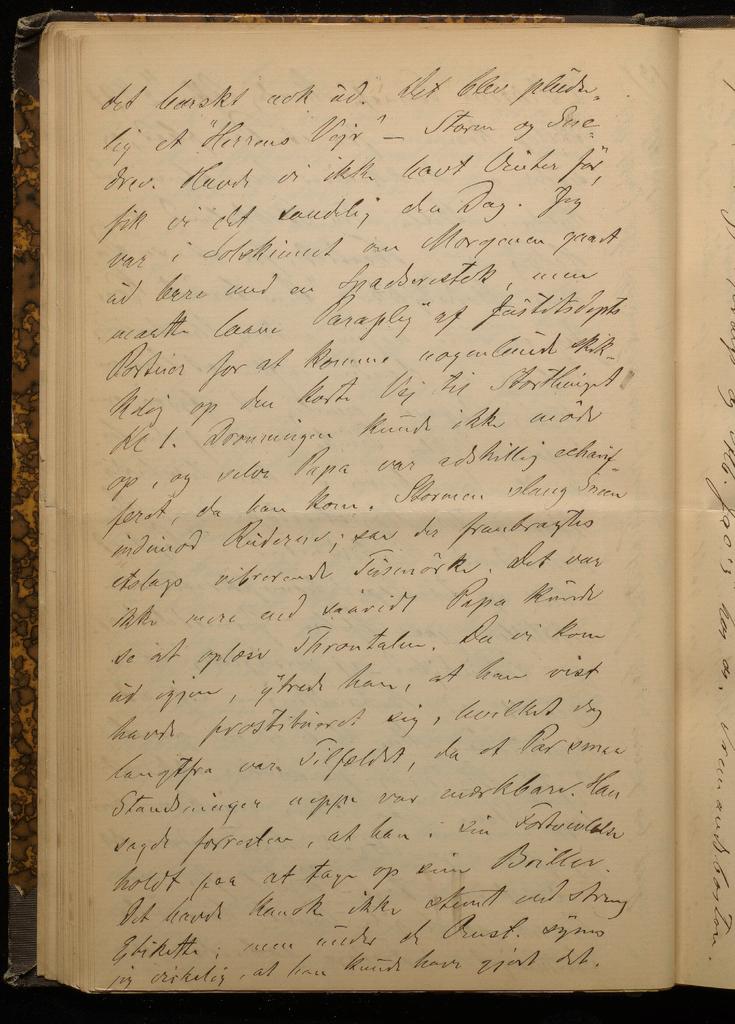 det barskt nok ud. Det blev pludse-
lig et "Herrens Vejr" – Storm og Sne-
drev. Havde vi ikke havt Vinter før,
fik vi det sandelig den Dag. Jeg
var i Solskinnet om Morgenen gaaet
ud bare med en Spadserestok, men
maatte laane "Paraply" af Justitsdepts
Portner for at komme nogenlunde skik-
kelig op den korte Vej til Storthinget
Kl 1. Dronningen kunde ikke møde
op, og selve Papa var adskillig echauf-
feret, da han kom. Stormen slang Sneen
indimod Ruderne; saa der frembragtes
etslags vibrerende Tusmörke. Det var
ikke mere end saavidt Papa kunde
se at oplæse Throntalen. Da vi kom
ud igjen, ytrede han, at han vist
havde prostitueret sig, hvilket dog
langtfra var Tilfældet, da et Par smaa
Standsninger neppe var mærkbare. Han
sagde forresten, at han i sin Fortvivlelse
holdt paa at tage op sine Briller.
Det havde kanske ikke stemt med streng
Etikette; men under de Omst. synes
jeg virkelig, at han kunde have gjort det.